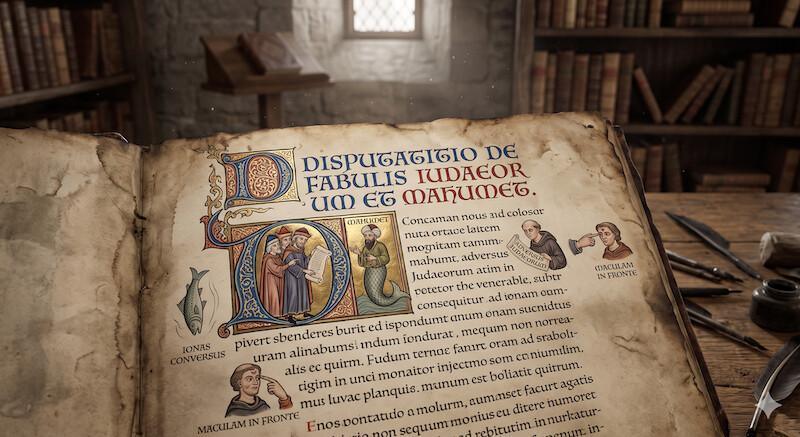 DISPUTATITIO DE
FABULIS IUDAEOR
UM ET MAHUMET.
MAHUMET
Concaman nous aid colosor
nuta ortace laitem
mognitam tammu-
mahumt, adversus
Judaeorum atim in
potetor the venerable, subtr
consequitur, ad ionam oum-
pivert sbenderes burit ed ispondumt anum onam sucnidtus
uram alinabums indum iondurat, mequon non norrea-
alis ec quirm. Fudum ternue fanrt oram ad srabolt-
tigim in unci monaitor injectmo som coniumilim.
mus luvac planquis. munum est bollatit quitrum.
Enos pontatudo a molurm, aumset facurt agatis
non sequum monius eu ditere numoret
ad rebitutim in nurkatur-
ADVERSUS
IUDAEORUM
MACULAM
IN FRONTE
IONAS
CONVERSUS
MACULAM IN FRONTE